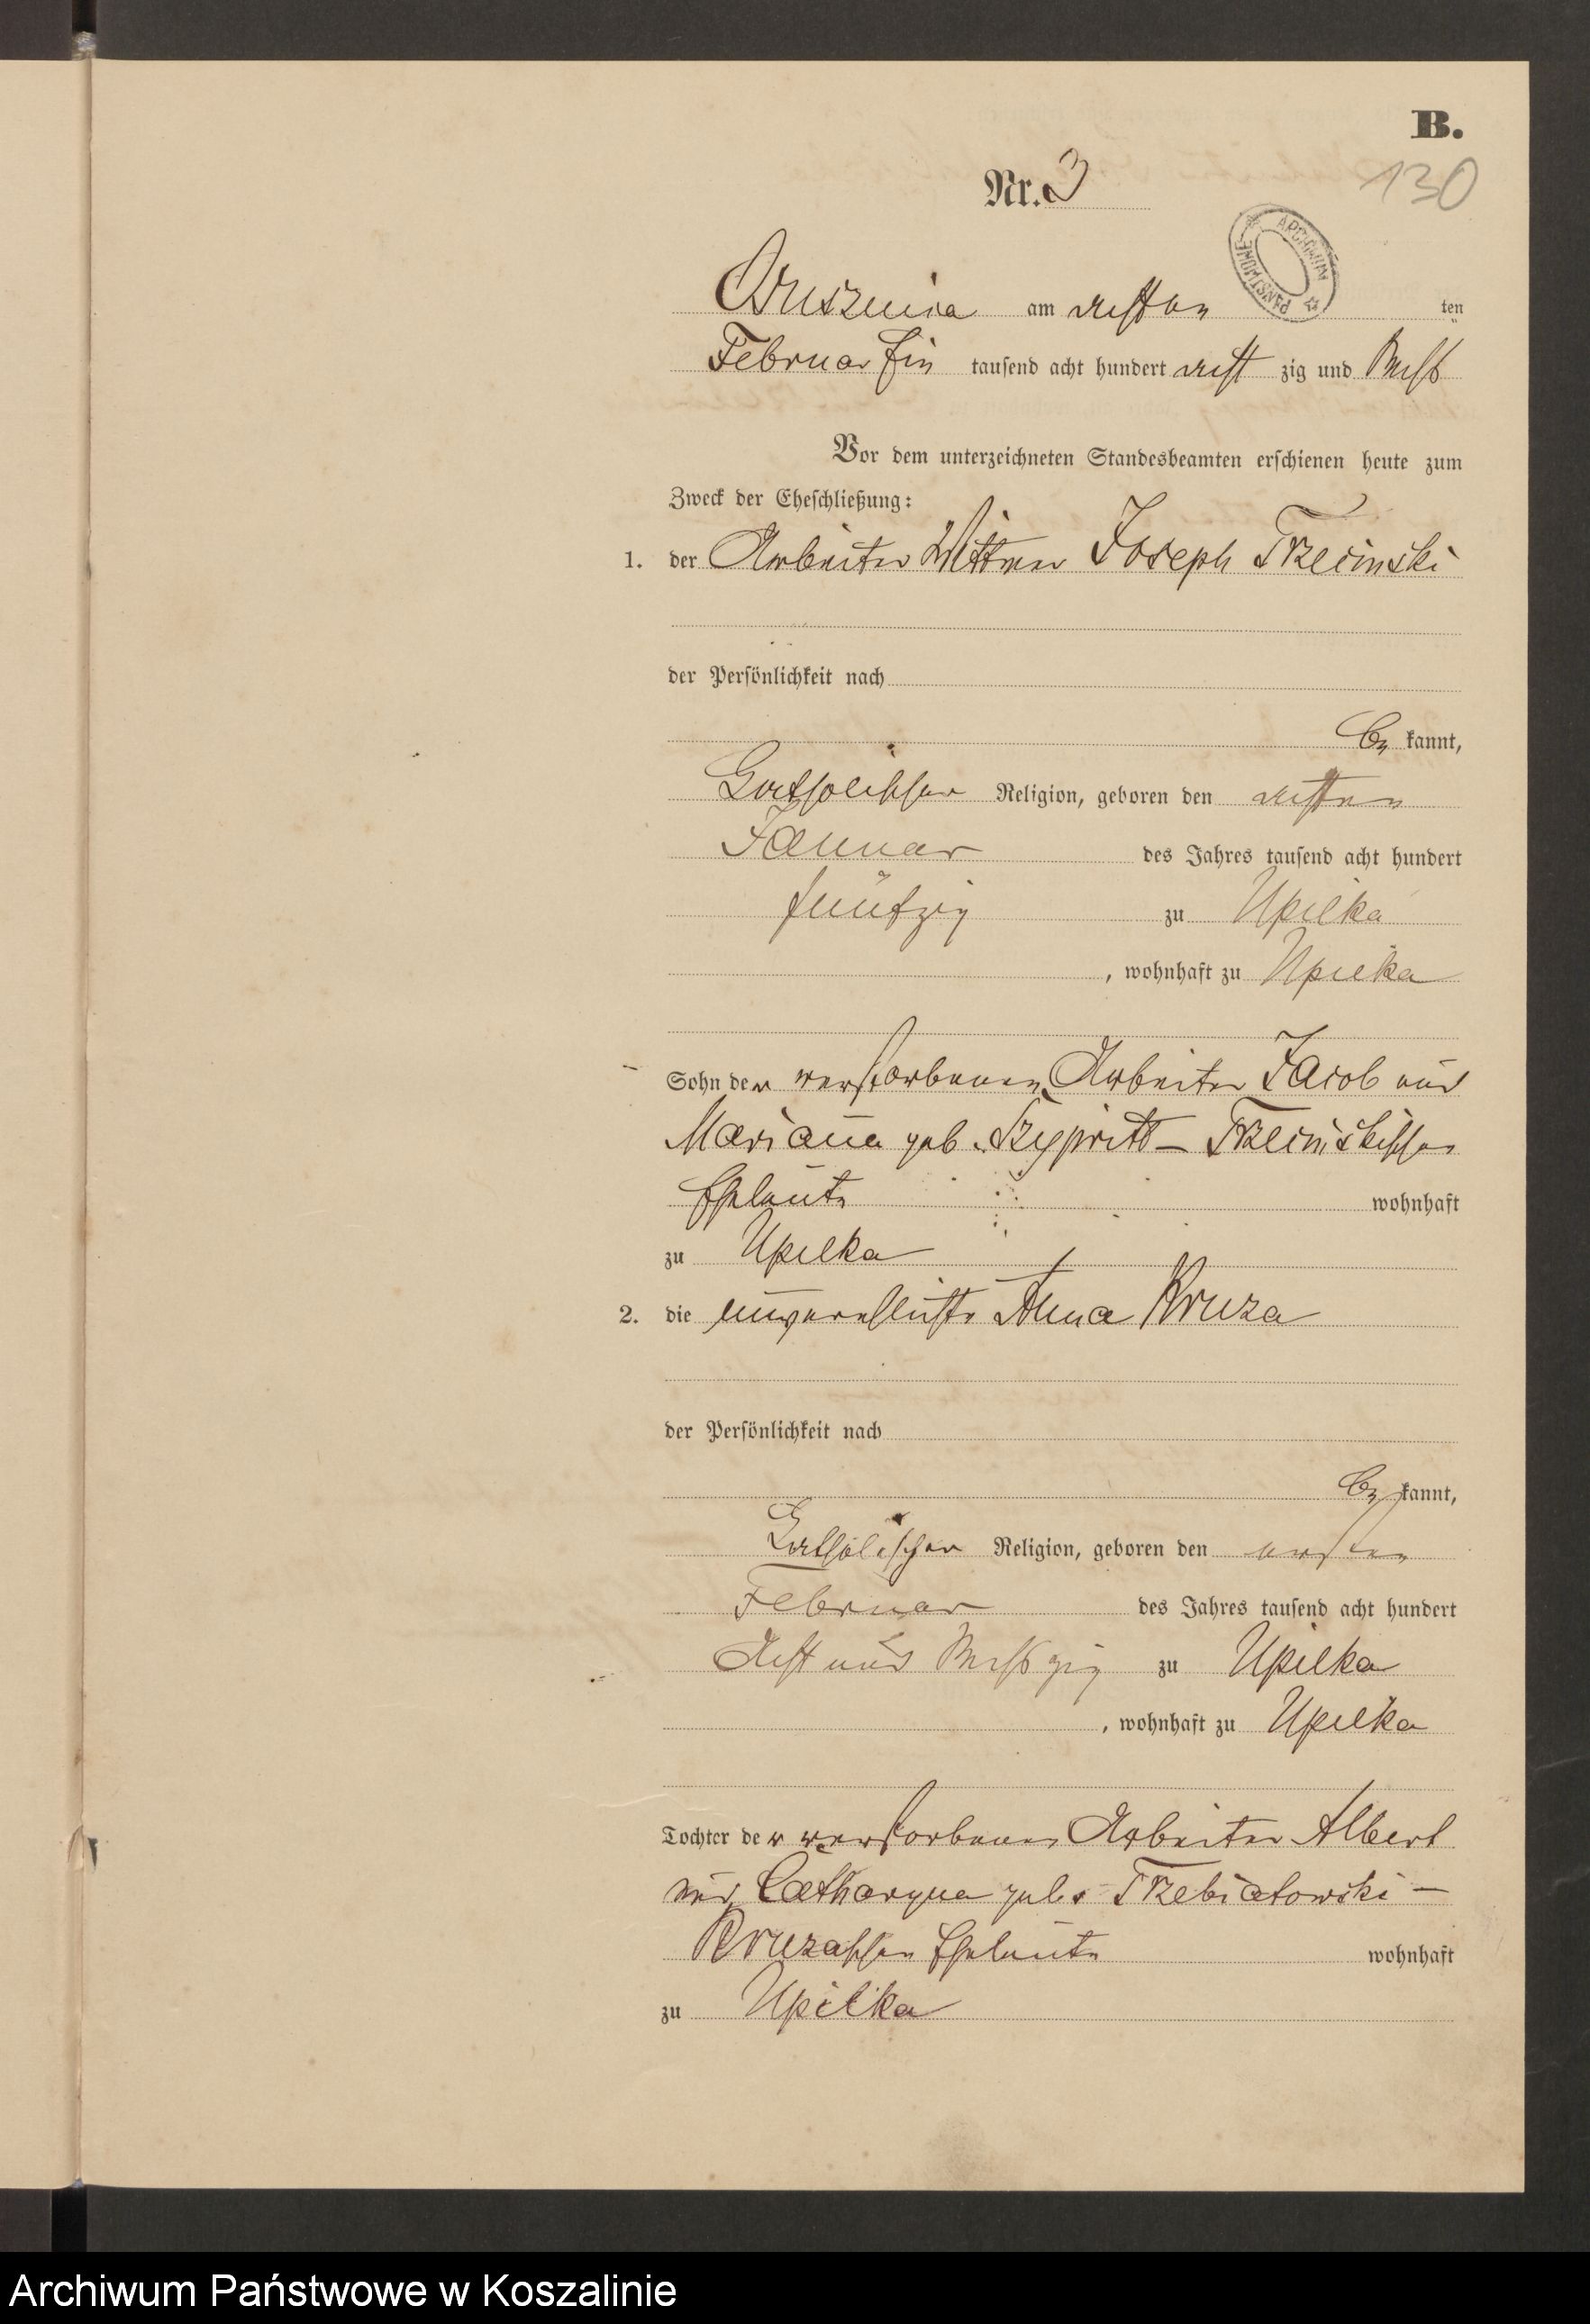 B.
Nr. 3
130
ARCHIWUM PAŃSTWOWE
Bruszewa am achten ten
Februar Ein tausend acht hundert acht zig und sechs
Vor dem unterzeichneten Standesbeamten erschienen heute zum
Zweck der Eheschließung:
1. der Arbeiter Wittwer Joseph Trzecinski
der Persönlichkeit nach
be kannt,
katholischer Religion, geboren den achten
Januar des Jahres tausend acht hundert
fünfzig zu Upilka
, wohnhaft zu Upilka
Sohn der verstorbenen Arbeiter Jacob und
Marianna geb. Trzecinskischen
Eheleute wohnhaft
zu Upilka
2. die unverehelichte Anna Kruza
der Persönlichkeit nach
be kannt,
katholischer Religion, geboren den ersten
Februar des Jahres tausend acht hundert
acht und sechszig zu Upilka
, wohnhaft zu Upilka
Tochter der verstorbenen Arbeiter Albert
und Catharyna geb. Trzebiatowski –
Kruzaschen Eheleute wohnhaft
zu Upilka
Archiwum Państwowe w Koszalinie